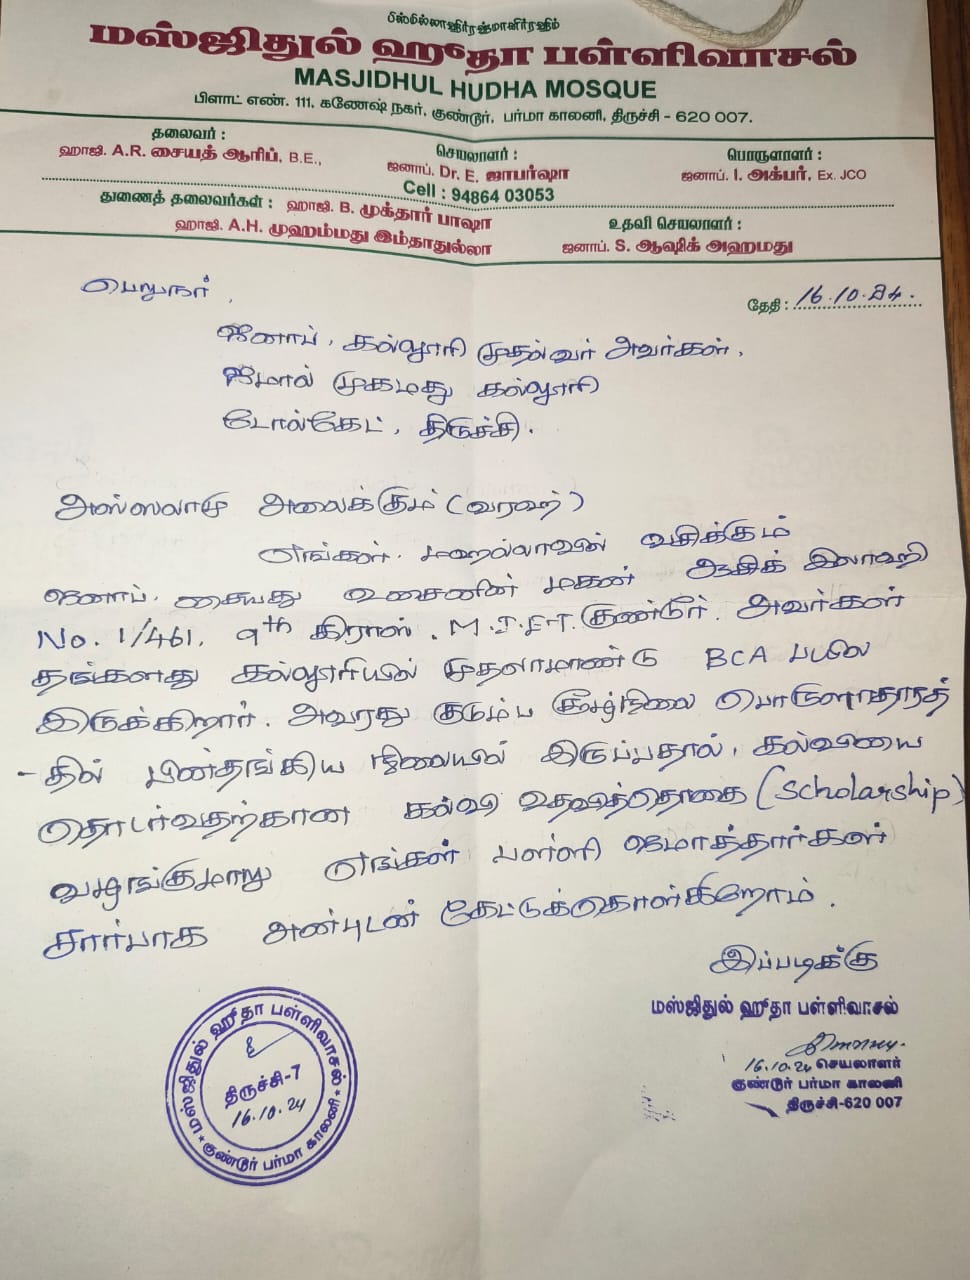 பிஸ்மில்லாஹிர்ரஹ்மானிர்ரஹீம்
மஸ்ஜிதுல் ஹுதா பள்ளிவாசல்
MASJIDHUL HUDHA MOSQUE
பிளாட் எண். 111, கணேஷ் நகர், குண்டூர், பர்மா காலனி, திருச்சி - 620 007.
தலைவர் :
ஹாஜி. A.R. சையத் ஆரிப், B.E.,
செயலாளர் :
ஜனாப். Dr. E. ஜாபர்ஷா
Cell : 94864 03053
பொருளாளர் :
ஜனாப். I. அக்பர், Ex. JCO
துணைத் தலைவர்கள் : ஹாஜி. B. முக்தார் பாஷா
ஹாஜி. A.H. முஹம்மது இம்தாதுல்லா
உதவி செயலாளர் :
ஜனாப். S. ஆஷிக் அஹமது
பெறுநர் ,
தேதி : 16.10.24.
ஜனாப். கல்லூரி முதல்வர் அவர்கள்,
ஜமால் முகமது கல்லூரி
டோல்கேட், திருச்சி.
அஸ்ஸலாமு அலைக்கும் (வரஹ்)
எங்கள் மஹல்லாவின் வசிக்கும்
ஜனாப். சையது உசைனின் மகன் ஆசிக் இலாஹி
No. 1/461, 9th கிராஸ், M.I.E.T. குண்டூர். அவர்கள்
தங்களது கல்லூரியில் முதலாமாண்டு BCA பயில
இருக்கிறார். அவரது குடும்ப சூழ்நிலை பொருளாதாரத்
- தில் பின்தங்கிய நிலையில் இருப்பதால், கல்வியை
தொடர்வதற்கான கல்வி உதவித்தொகை (Scholarship)
வழங்குமாறு எங்கள் பள்ளி ஜமாத்தார்கள்
சார்பாக அன்புடன் கேட்டுக்கொள்கிறோம்.
இப்படிக்கு
மஸ்ஜிதுல் ஹுதா பள்ளிவாசல்
16.10.24 செயலாளர்
குண்டூர் பர்மா காலனி
திருச்சி-620 007
மஸ்ஜிதுல் ஹுதா பள்ளிவாசல்
திருச்சி-7
16.10.24
* குண்டூர் பர்மா காலனி *